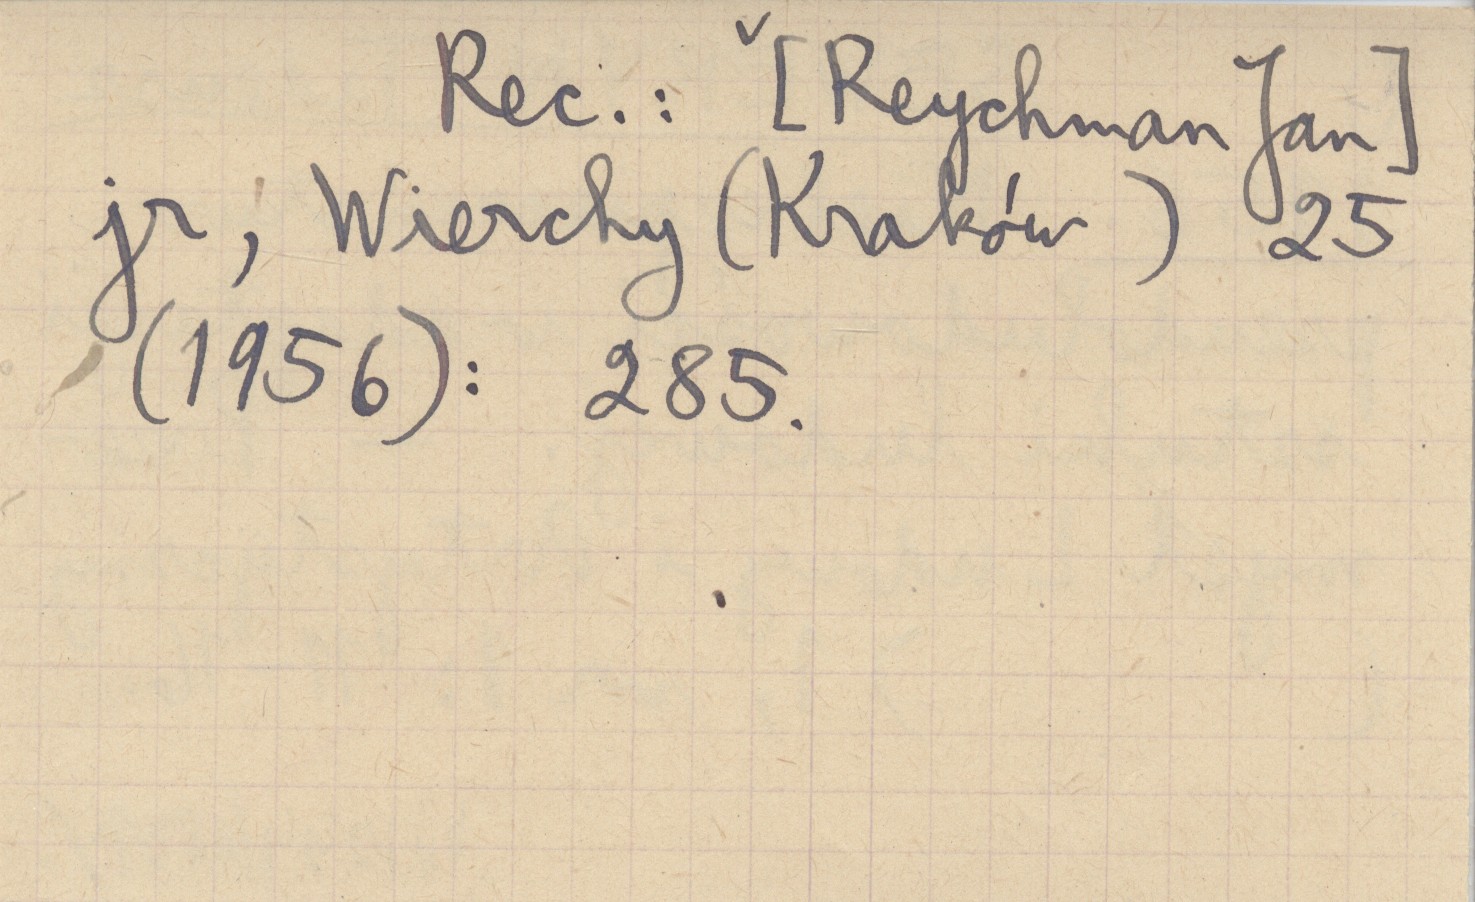 Rec.: [Reychman Jan]
jr, Wierchy (Kraków) 25
(1956): 285.